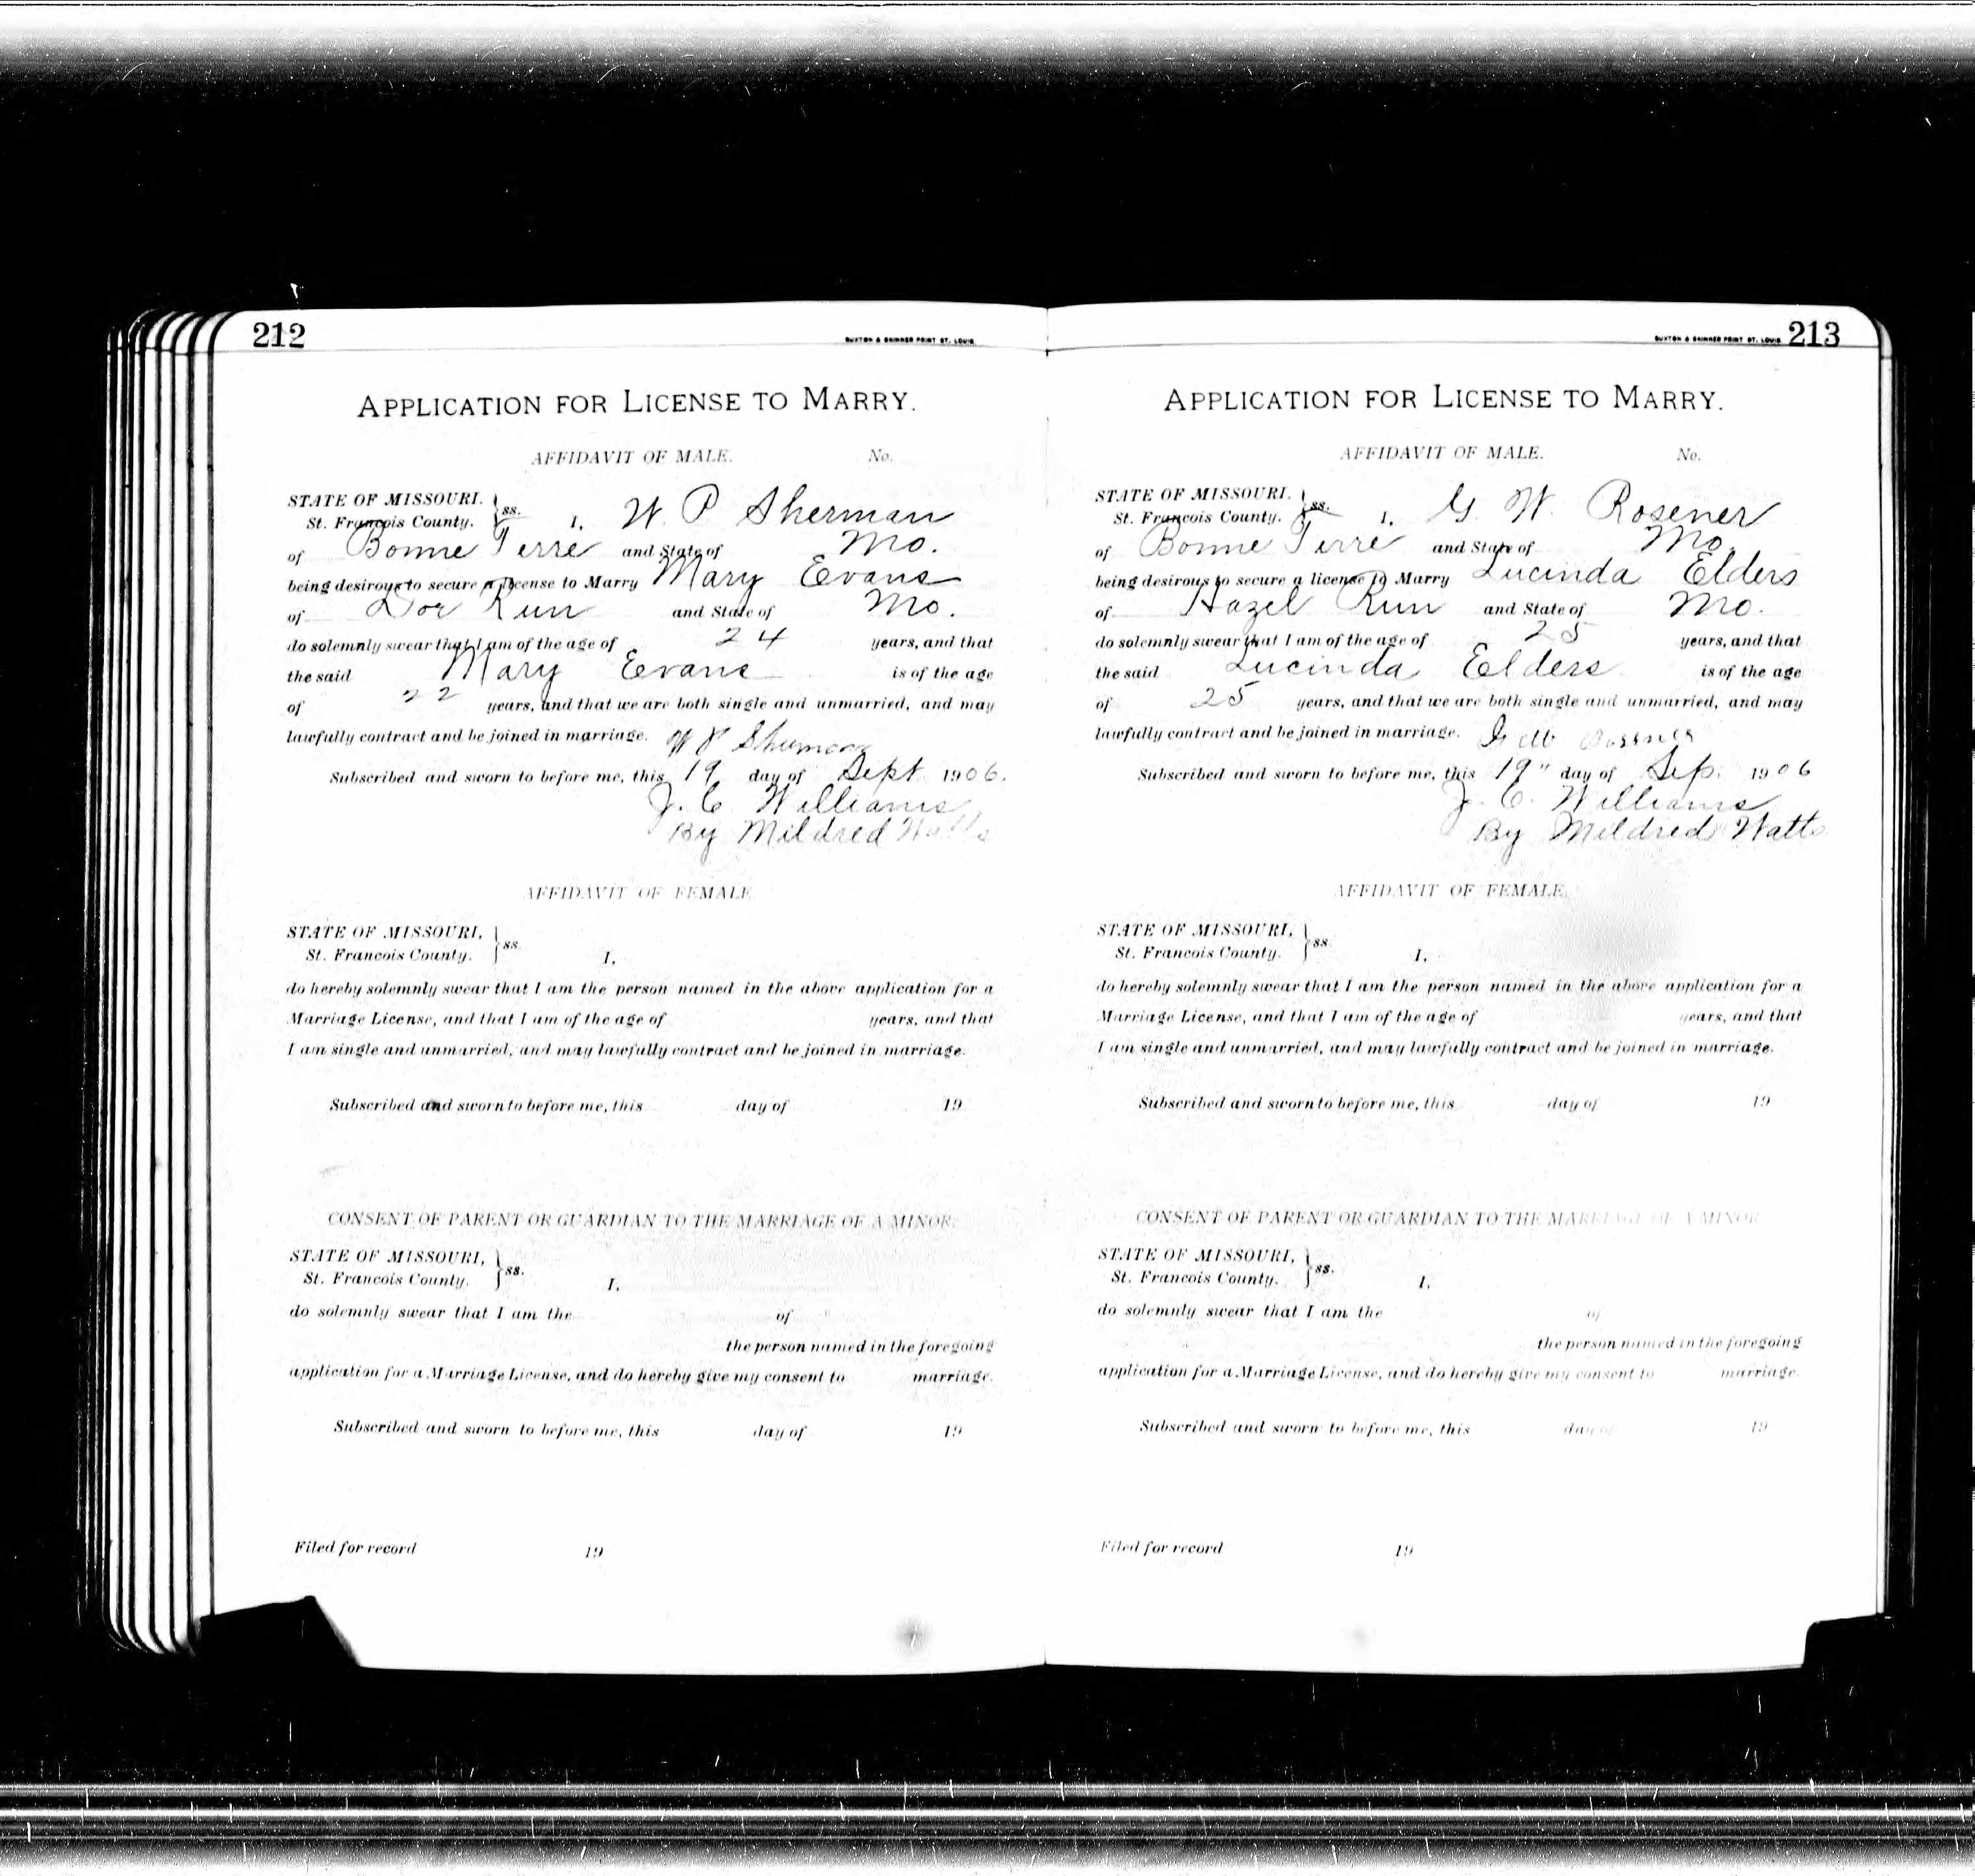 212
BUXTON & SKINNER PRINT ST. LOUIS.
APPLICATION FOR LICENSE TO MARRY.
AFFIDAVIT OF MALE. No.
STATE OF MISSOURI. } ss.
St. Francois County. I, W. P Sherman
of Bonne Terre and State of Mo.
being desirous to secure a license to Marry Mary Evans
of Doe Run and State of Mo.
do solemnly swear that I am of the age of 24 years, and that
the said Mary Evans is of the age
of 22 years, and that we are both single and unmarried, and may
lawfully contract and be joined in marriage. W P Sherman
Subscribed and sworn to before me, this 19 day of Sept. 1906.
J. C. Williams
By Mildred Watts
AFFIDAVIT OF FEMALE
STATE OF MISSOURI, } ss
St. Francois County. I,
do hereby solemnly swear that I am the person named in the above application for a
Marriage License, and that I am of the age of years, and that
I am single and unmarried, and may lawfully contract and be joined in marriage.
Subscribed and sworn to before me, this day of 19
CONSENT OF PARENT OR GUARDIAN TO THE MARRIAGE OF A MINOR.
STATE OF MISSOURI, } ss.
St. Francois County. I,
do solemnly swear that I am the of
the person named in the foregoing
application for a Marriage License, and do hereby give my consent to marriage.
Subscribed and sworn to before me, this day of 19
Filed for record 19
213
BUXTON & SKINNER PRINT ST. LOUIS
APPLICATION FOR LICENSE TO MARRY.
AFFIDAVIT OF MALE. No.
STATE OF MISSOURI. } ss.
St. Francois County. I, G. W. Rosener
of Bonne Terre and State of Mo.
being desirous to secure a license to Marry Lucinda Elders
of Hazel Run and State of Mo.
do solemnly swear that I am of the age of 25 years, and that
the said Lucinda Elders is of the age
of 25 years, and that we are both single and unmarried, and may
lawfully contract and be joined in marriage.
Subscribed and sworn to before me, this 19" day of Sep. 1906
J. C. Williams
By Mildred Watts
AFFIDAVIT OF FEMALE.
STATE OF MISSOURI, } ss
St. Francois County. I,
do hereby solemnly swear that I am the person named in the above application for a
Marriage License, and that I am of the age of years, and that
I am single and unmarried, and may lawfully contract and be joined in marriage.
Subscribed and sworn to before me, this day of 19
CONSENT OF PARENT OR GUARDIAN TO THE MARRIAGE OF A MINOR
STATE OF MISSOURI, } ss.
St. Francois County. I,
do solemnly swear that I am the of
the person named in the foregoing
application for a Marriage License, and do hereby give my consent to marriage.
Subscribed and sworn to before me, this day of 19
Filed for record 19